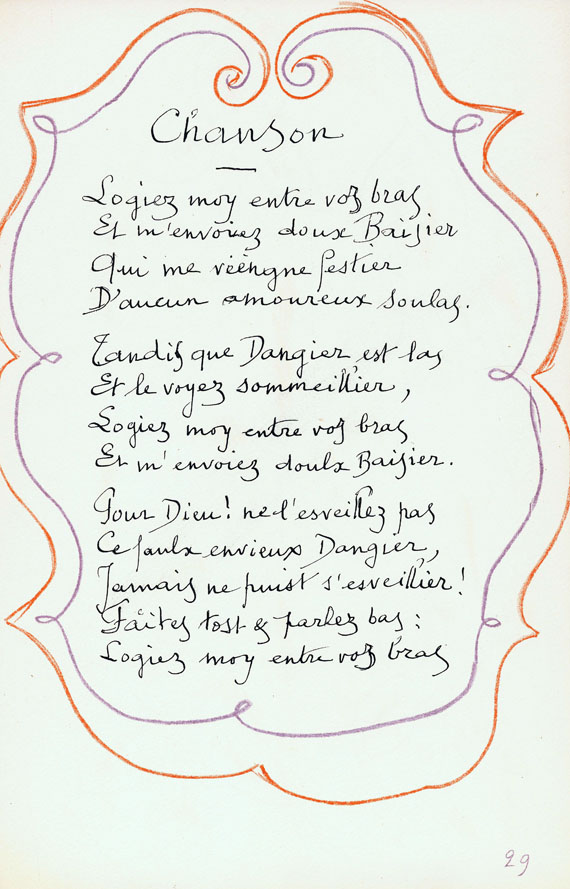 Chanson
Logiez moy entre voz bras
Et m'envoiez doux Baisier
Qui me vëengne festier
D'aucun amoureux soulas.
Tandis que Dangier est las
Et le voyez sommeillier,
Logiez moy entre voz bras
Et m'envoiez doulx Baisier.
Pour Dieu! ne l'esveillez pas
Ce faulx envieux Dangier,
Jamais ne puist s'esveillier!
Faites tost & parlez bas:
Logiez moy entre voz bras
29